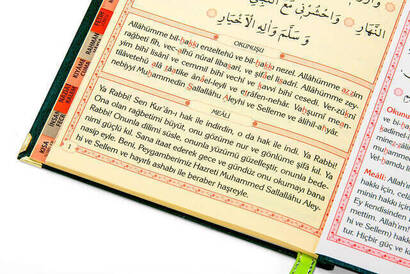 النَّهَارِ وَاحْشُرْنِي مَعَ النَّبِيِّ
وَسَلَّمَ وَآلِهِ الْاَخْيَارِ
OKUNUŞU
Allâhümme bil-hakkı enzeltehû ve bil-hakkı nezel. Allâhümme azzım
rağbetî fîh, vec-alhü nûral libasarî, ve şifâel lisadrî. Allâhümme zey-
yin bihî lisânî ve cemmil bihî vechî ve kavvi bihî cesedî. Ver-zuknî
tilâvetehû alâ tâatike ânâel-leyli ve etrâfen-nehâr. Vahşurnî mean-
nebiyyi Muhammedin Sallallâhu Aleyhi ve Selleme ve âlihil-ahyâr.
MEÂLİ
Ya Rabbi! Sen Kur'ân-ı hak ile indirdin, o da hak ile indi. Ya Rabbi!
Ona olan rağbetimi büyüt, onu gözüme nur ve gönlüme şifâ kıl. Ya
Rabbi! Onunla dilimi süsle, onunla yüzümü güzelleştir, onunla bede-
nimi güçlü kıl. Sana itaat ederek gece ve gündüz onu okumayı bana
nasip eyle. Beni, Peygamberimiz Hazreti Muhammed Sallallâhu Aley-
hi ve Sellem ve hayırlı ashabı ile beraber haşreyle.
FETİH
RAHMAN
CUMA
KIYAME
NEBE
FECR
İNŞ
Okunu
Allah
hakkı
Muham
Vel-ham
Meâli:
Allah'ım
hakkı için,
celenin hakk
Ey kendisinden
mettim. Allah'ım!
hi ve Sellem'in h
tur. Hiçbir güç ve k